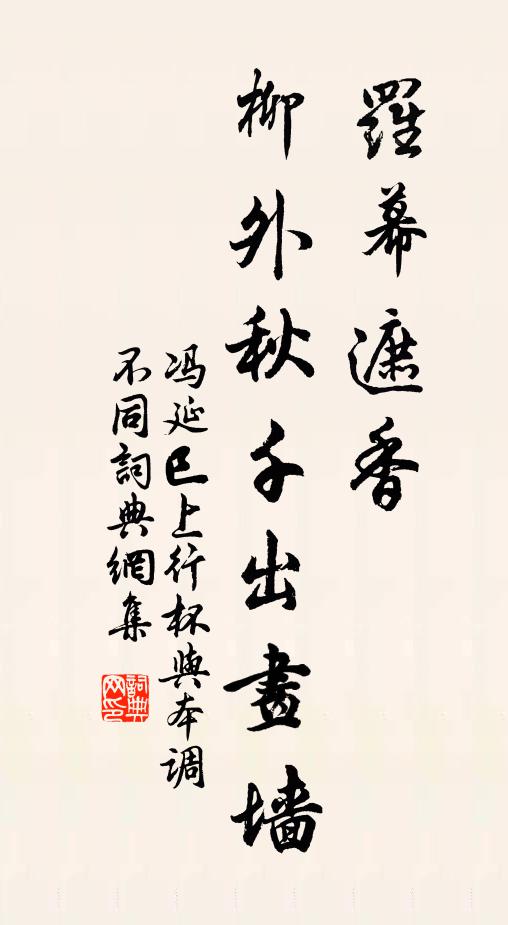 羅幕遮香
柳外秋千出畫墙
冯延巳上行杯與本调
不同詞典網集
詞典网印